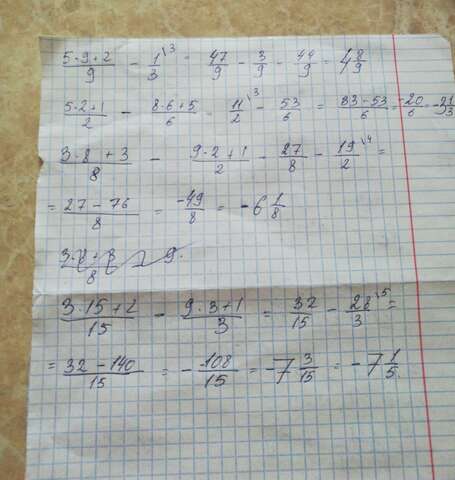 (5·9+2)/9 - 1/3\3 - 47/9 - 3/9 - 44/9 = 4 8/9
(5·2+1)/2 - (8·6+5)/6 - 11/2\3 - 53/6 = (33-53)/6 = -20/6 = -
(3·8+3)/8 - (9·2+1)/2 - 27/8 - 19/2\4 =
= (27-76)/8 = -49/8 = -6 1/8
(3·15+2)/15 - (9·3+1)/3 = 32/15 - 28/3\5 =
= (32-140)/15 = -108/15 = -7 3/15 = -7 1/5